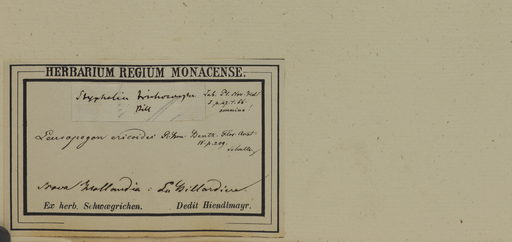 HERBARIUM REGIUM MONACENSE.
Styphelia
Bill
Lab. Pl. Nov. Holl.
omnino!
Leucopogon ericoides R. Br. Benth. Flor. Aust.
IV. p. 209.
Nova Hollandia: La Billardiere
Ex herb. Schwœgrichen. Dedit Hiendlmayr.